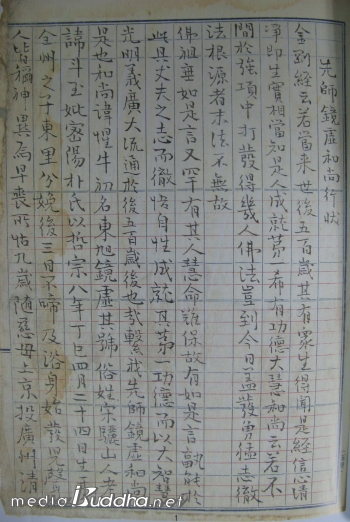 先師鏡虛和尚行狀
金剛經云若當來世後五百歲其有衆生得聞是經信心清
淨即生實相當知是人成就第一希有功德大慧和尚云若不
間於強項中打發得幾人佛法豈到今日盖發勇猛志徹
法根源者末法不無故
佛祖垂如是言又罕有其人慧命難保故有如是言孰能於
此具丈夫之志而徹悟自性成就其第一功德而以大智慧
光明義廣大流通於後五百歲後也哉繄我先師鏡虛和尚
是也和尚諱惺牛初名東旭鏡虛其號俗姓宋驪山人考
諱斗玉妣密陽朴氏以哲宗八年丁巳四月二十四日生于
全州之子東里分娩後三日不啼及浴身始發兒聲
人皆稱神異焉早喪所怙九歲隨慈母上京投廣州清
mediaBuddha.net